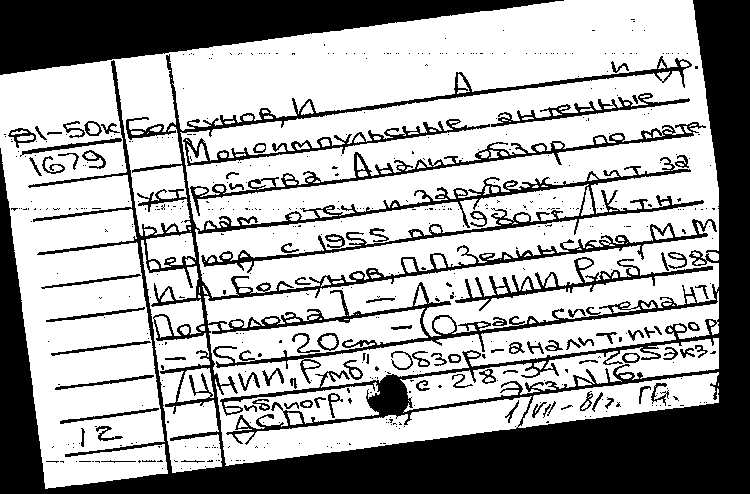 81-50к Болсунов, И А и др.
1679 Моноимпульсные антенные
устройства: Аналит. обзор по мате-
риалам отеч. и зарубеж. лит. за
период с 1955 по 1980 гг / [К.т.н.
И.А. Болсунов, П.П. Зелинская, М.М.
Постолова]. — Л.: ЦНИИ „Румб", 1980
— 35с.; 20см. — (Отрасл. система НТИ
/ЦНИИ „Румб". Обзор.-аналит. инфор
Библиогр: с. 28-34. — 205экз.
ДСП. Экз. N 16.
12 1/VII-81г. ГБ.